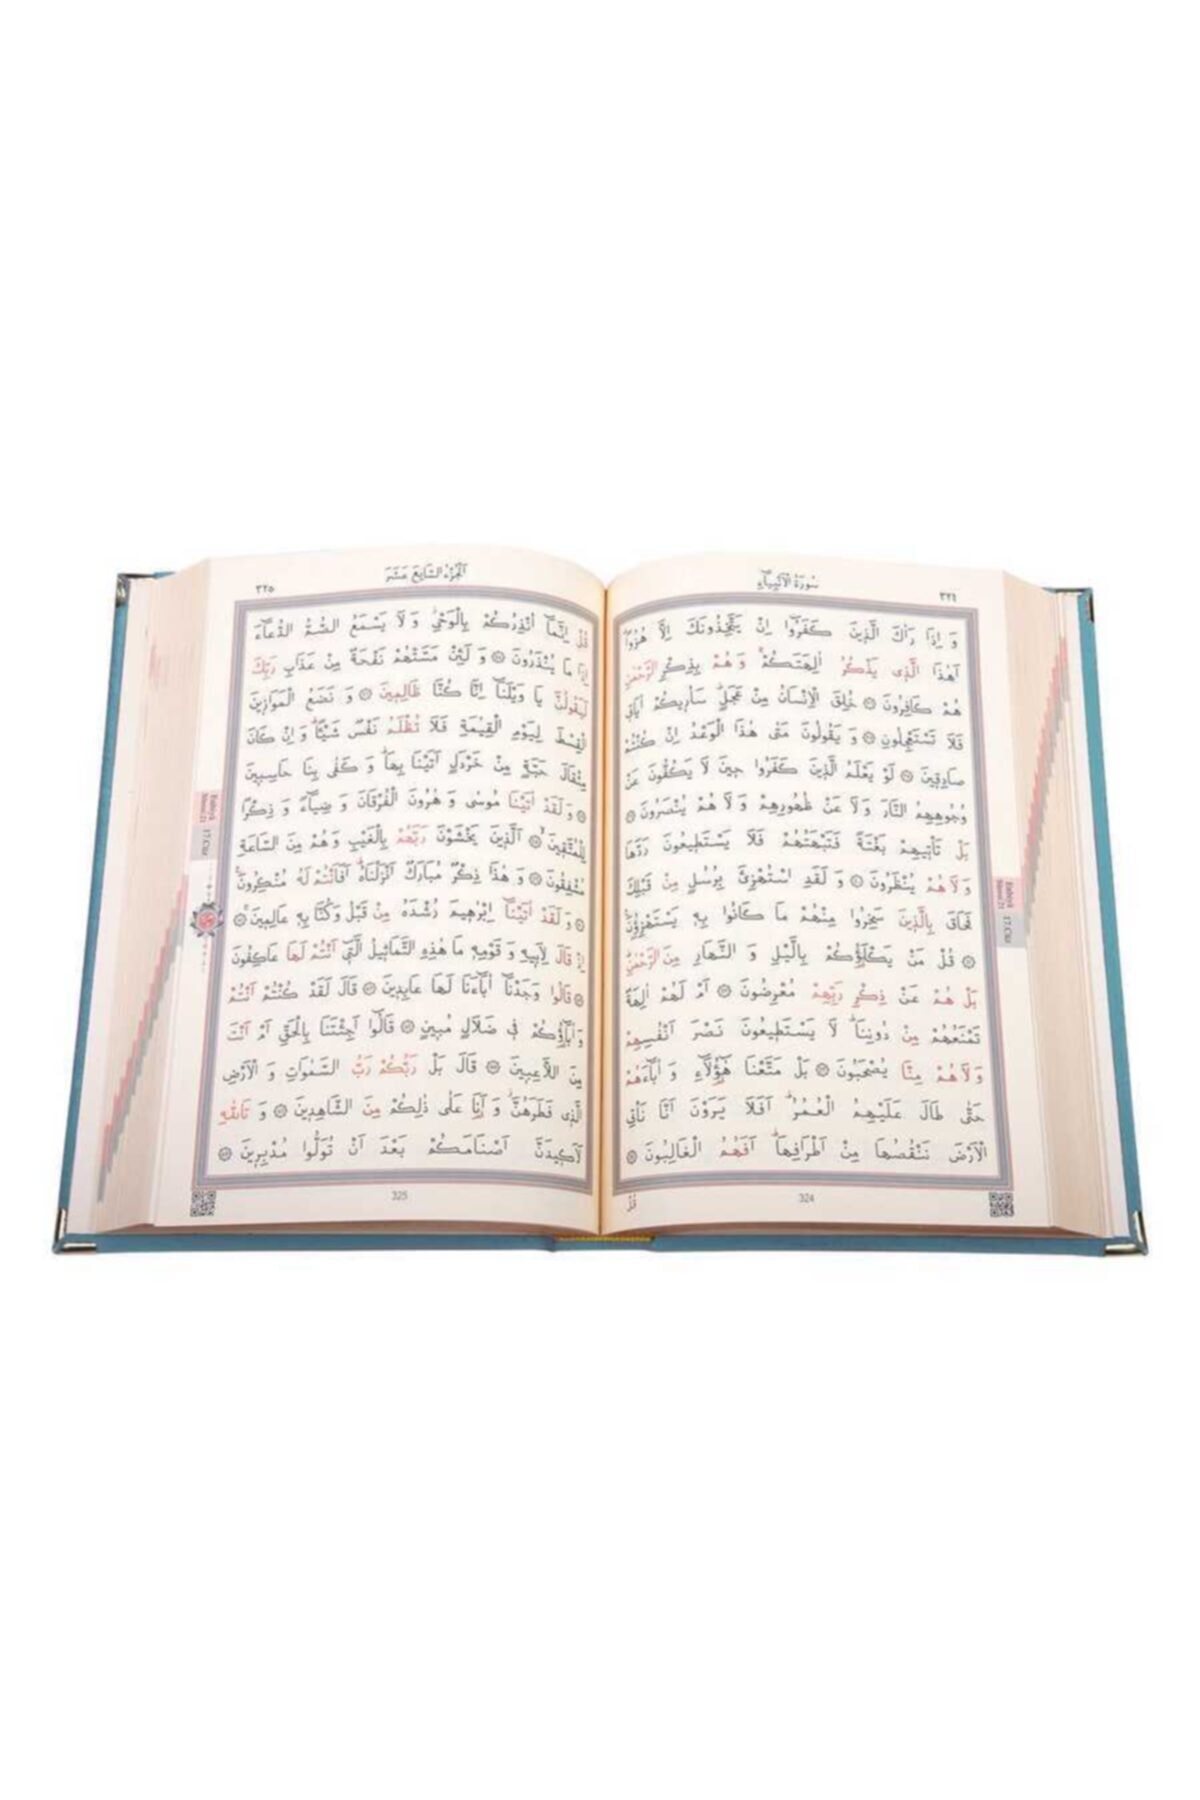 ٣٢٤
سُورَةُ الْاَنْبِيَاءِ
وَ اِذَا رَاٰكَ الَّذِينَ كَفَرُٓوا اِنْ يَتَّخِذُونَكَ اِلَّا هُزُوًاۜ
اَهٰذَا الَّذِى يَذْكُرُ اٰلِهَتَكُمْۚ وَ هُمْ بِذِكْرِ الرَّحْمٰنِ
هُمْ كَافِرُونَ ۞ خُلِقَ الْاِنْسَانُ مِنْ عَجَلٍۜ سَاُرِيكُمْ اٰيَاتِى
فَلَا تَسْتَعْجِلُونِ ۞ وَ يَقُولُونَ مَتٰى هٰذَا الْوَعْدُ اِنْ كُنْتُمْ
صَادِقِينَ ۞ لَوْ يَعْلَمُ الَّذِينَ كَفَرُوا حِينَ لَا يَكُفُّونَ عَنْ
وُجُوهِهِمُ النَّارَ وَ لَا عَنْ ظُهُورِهِمْ وَ لَا هُمْ يُنْصَرُونَ ۞
بَلْ تَأْتِيهِمْ بَغْتَةً فَتَبْهَتُهُمْ فَلَا يَسْتَطِيعُونَ رَدَّهَا
وَ لَا هُمْ يُنْظَرُونَ ۞ وَ لَقَدِ اسْتُهْزِئَ بِرُسُلٍ مِنْ قَبْلِكَ
فَحَاقَ بِالَّذِينَ سَخِرُوا مِنْهُمْ مَا كَانُوا بِهِ يَسْتَهْزِؤُنَ۟
۞ قُلْ مَنْ يَكْلَؤُ۬كُمْ بِالَّيْلِ وَ النَّهَارِ مِنَ الرَّحْمٰنِۜ
بَلْ هُمْ عَنْ ذِكْرِ رَبِّهِمْ مُعْرِضُونَ ۞ اَمْ لَهُمْ اٰلِهَةٌ
تَمْنَعُهُمْ مِنْ دُونِنَاۜ لَا يَسْتَطِيعُونَ نَصْرَ اَنْفُسِهِمْ
وَ لَا هُمْ مِنَّا يُصْحَبُونَ ۞ بَلْ مَتَّعْنَا هٰٓؤُ۬لَٓاءِ وَ اٰبَٓاءَهُمْ
حَتّٰى طَالَ عَلَيْهِمُ الْعُمُرُۜ اَفَلَا يَرَوْنَ اَنَّا نَأْتِى
الْاَرْضَ نَنْقُصُهَا مِنْ اَطْرَافِهَاۜ اَفَهُمُ الْغَالِبُونَ ۞
324
قُلْ
17.Cüz
٣٢٥
اَلْجُزْءُ السَّابِعَ عَشَرَ
قُلْ اِنَّمَٓا اُنْذِرُكُمْ بِالْوَحْىِۘ وَ لَا يَسْمَعُ الصُّمُّ الدُّعَٓاءَ
اِذَا مَا يُنْذَرُونَ ۞ وَ لَئِنْ مَسَّتْهُمْ نَفْحَةٌ مِنْ عَذَابِ رَبِّكَ
لَيَقُولُنَّ يَا وَيْلَنَٓا اِنَّا كُنَّا ظَالِمِينَ ۞ وَ نَضَعُ الْمَوَازِينَ
الْقِسْطَ لِيَوْمِ الْقِيٰمَةِ فَلَا تُظْلَمُ نَفْسٌ شَيْـًٔاۜ وَ اِنْ كَانَ
مِثْقَالَ حَبَّةٍ مِنْ خَرْدَلٍ اَتَيْنَا بِهَاۜ وَ كَفٰى بِنَا حَاسِبِينَ
۞ وَ لَقَدْ اٰتَيْنَا مُوسٰى وَ هٰرُونَ الْفُرْقَانَ وَ ضِيَٓاءً وَ ذِكْرًا
لِلْمُتَّقِينَۙ ۞ اَلَّذِينَ يَخْشَوْنَ رَبَّهُمْ بِالْغَيْبِ وَ هُمْ مِنَ السَّاعَةِ
مُشْفِقُونَ ۞ وَ هٰذَا ذِكْرٌ مُبَارَكٌ اَنْزَلْنَاهُۜ اَفَاَنْتُمْ لَهُ مُنْكِرُونَ۟
۞ وَ لَقَدْ اٰتَيْنَٓا اِبْرٰهِيمَ رُشْدَهُ مِنْ قَبْلُ وَ كُنَّا بِهِ عَالِمِينَۚ ۞
اِذْ قَالَ لِاَبِيهِ وَ قَوْمِهِ مَا هٰذِهِ التَّمَاثِيلُ الَّتِٓى اَنْتُمْ لَهَا عَاكِفُونَ
۞ قَالُوا وَجَدْنَٓا اٰبَٓاءَنَا لَهَا عَابِدِينَ ۞ قَالَ لَقَدْ كُنْتُمْ اَنْتُمْ
وَ اٰبَٓاؤُ۬كُمْ فِى ضَلَالٍ مُبِينٍ ۞ قَالُٓوا اَجِئْتَنَا بِالْحَقِّ اَمْ اَنْتَ
مِنَ اللَّاعِبِينَ ۞ قَالَ بَلْ رَبُّكُمْ رَبُّ السَّمٰوَاتِ وَ الْاَرْضِ
الَّذِى فَطَرَهُنَّۘ وَ اَنَا عَلٰى ذٰلِكُمْ مِنَ الشَّاهِدِينَ ۞ وَ تَاللّٰهِ
لَاَكِيدَنَّ اَصْنَامَكُمْ بَعْدَ اَنْ تُوَلُّوا مُدْبِرِينَ ۞
325
17.Cüz